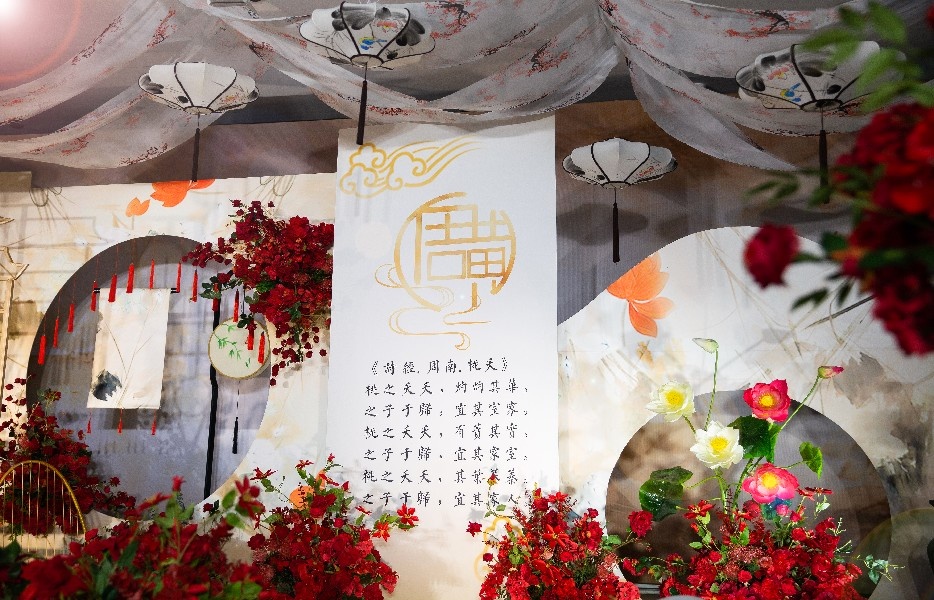 《詩經.周南.桃夭》
桃之夭夭，灼灼其華。
之子于歸，宜其室家。
桃之夭夭，有蕡其實。
之子于歸，宜其家室。
桃之夭夭，其葉蓁蓁。
之子于歸，宜其家人